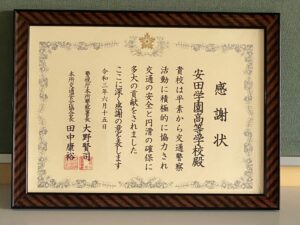 感謝状
安田学園高等学校殿
貴校は平素から交通警察
活動に積極的に協力され
交通の安全と円滑の確保に
多大の貢献をされました
ここに深く感謝の意を表します
令和三年六月十五日
警視庁本所警察署長 大野賢司
本所交通安全協会会長 田中康裕